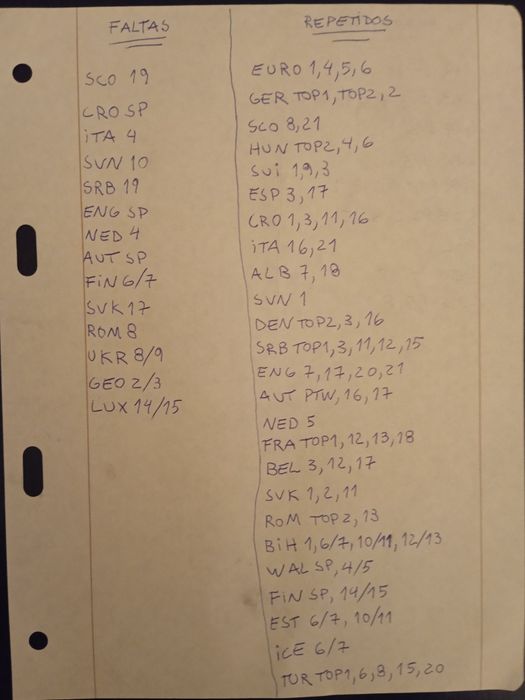 FALTAS
SCO 19
CRO SP
iTA 4
SVN 10
SRB 19
ENG SP
NED 4
AUT SP
FiN 6/7
SVK 17
ROM 8
UKR 8/9
GEO 2/3
LUX 14/15
REPETiDOS
EURO 1,4,5,6
GER TOP1, TOP2, 2
SCO 8,21
HUN TOP2, 4, 6
SUi 1,9,3
ESP 3, 17
CRO 1,3,11,16
iTA 16,21
ALB 7, 18
SVN 1
DEN TOP2, 3, 16
SRB TOP1, 3, 11, 12, 15
ENG 7, 17, 20, 21
AUT PTW, 16, 17
NED 5
FRA TOP1, 12, 13, 18
BEL 3, 12, 17
SVK 1, 2, 11
ROM TOP2, 13
BiH 1, 6/7, 10/11, 12/13
WAL SP, 4/5
FiN SP, 14/15
EST 6/7, 10/11
iCE 6/7
TUR TOP1, 6, 8, 15, 20